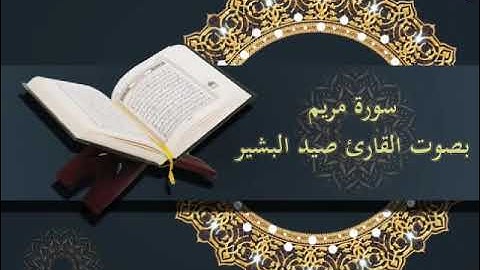 سورة مريم
بصوت القارئ صيد البشير